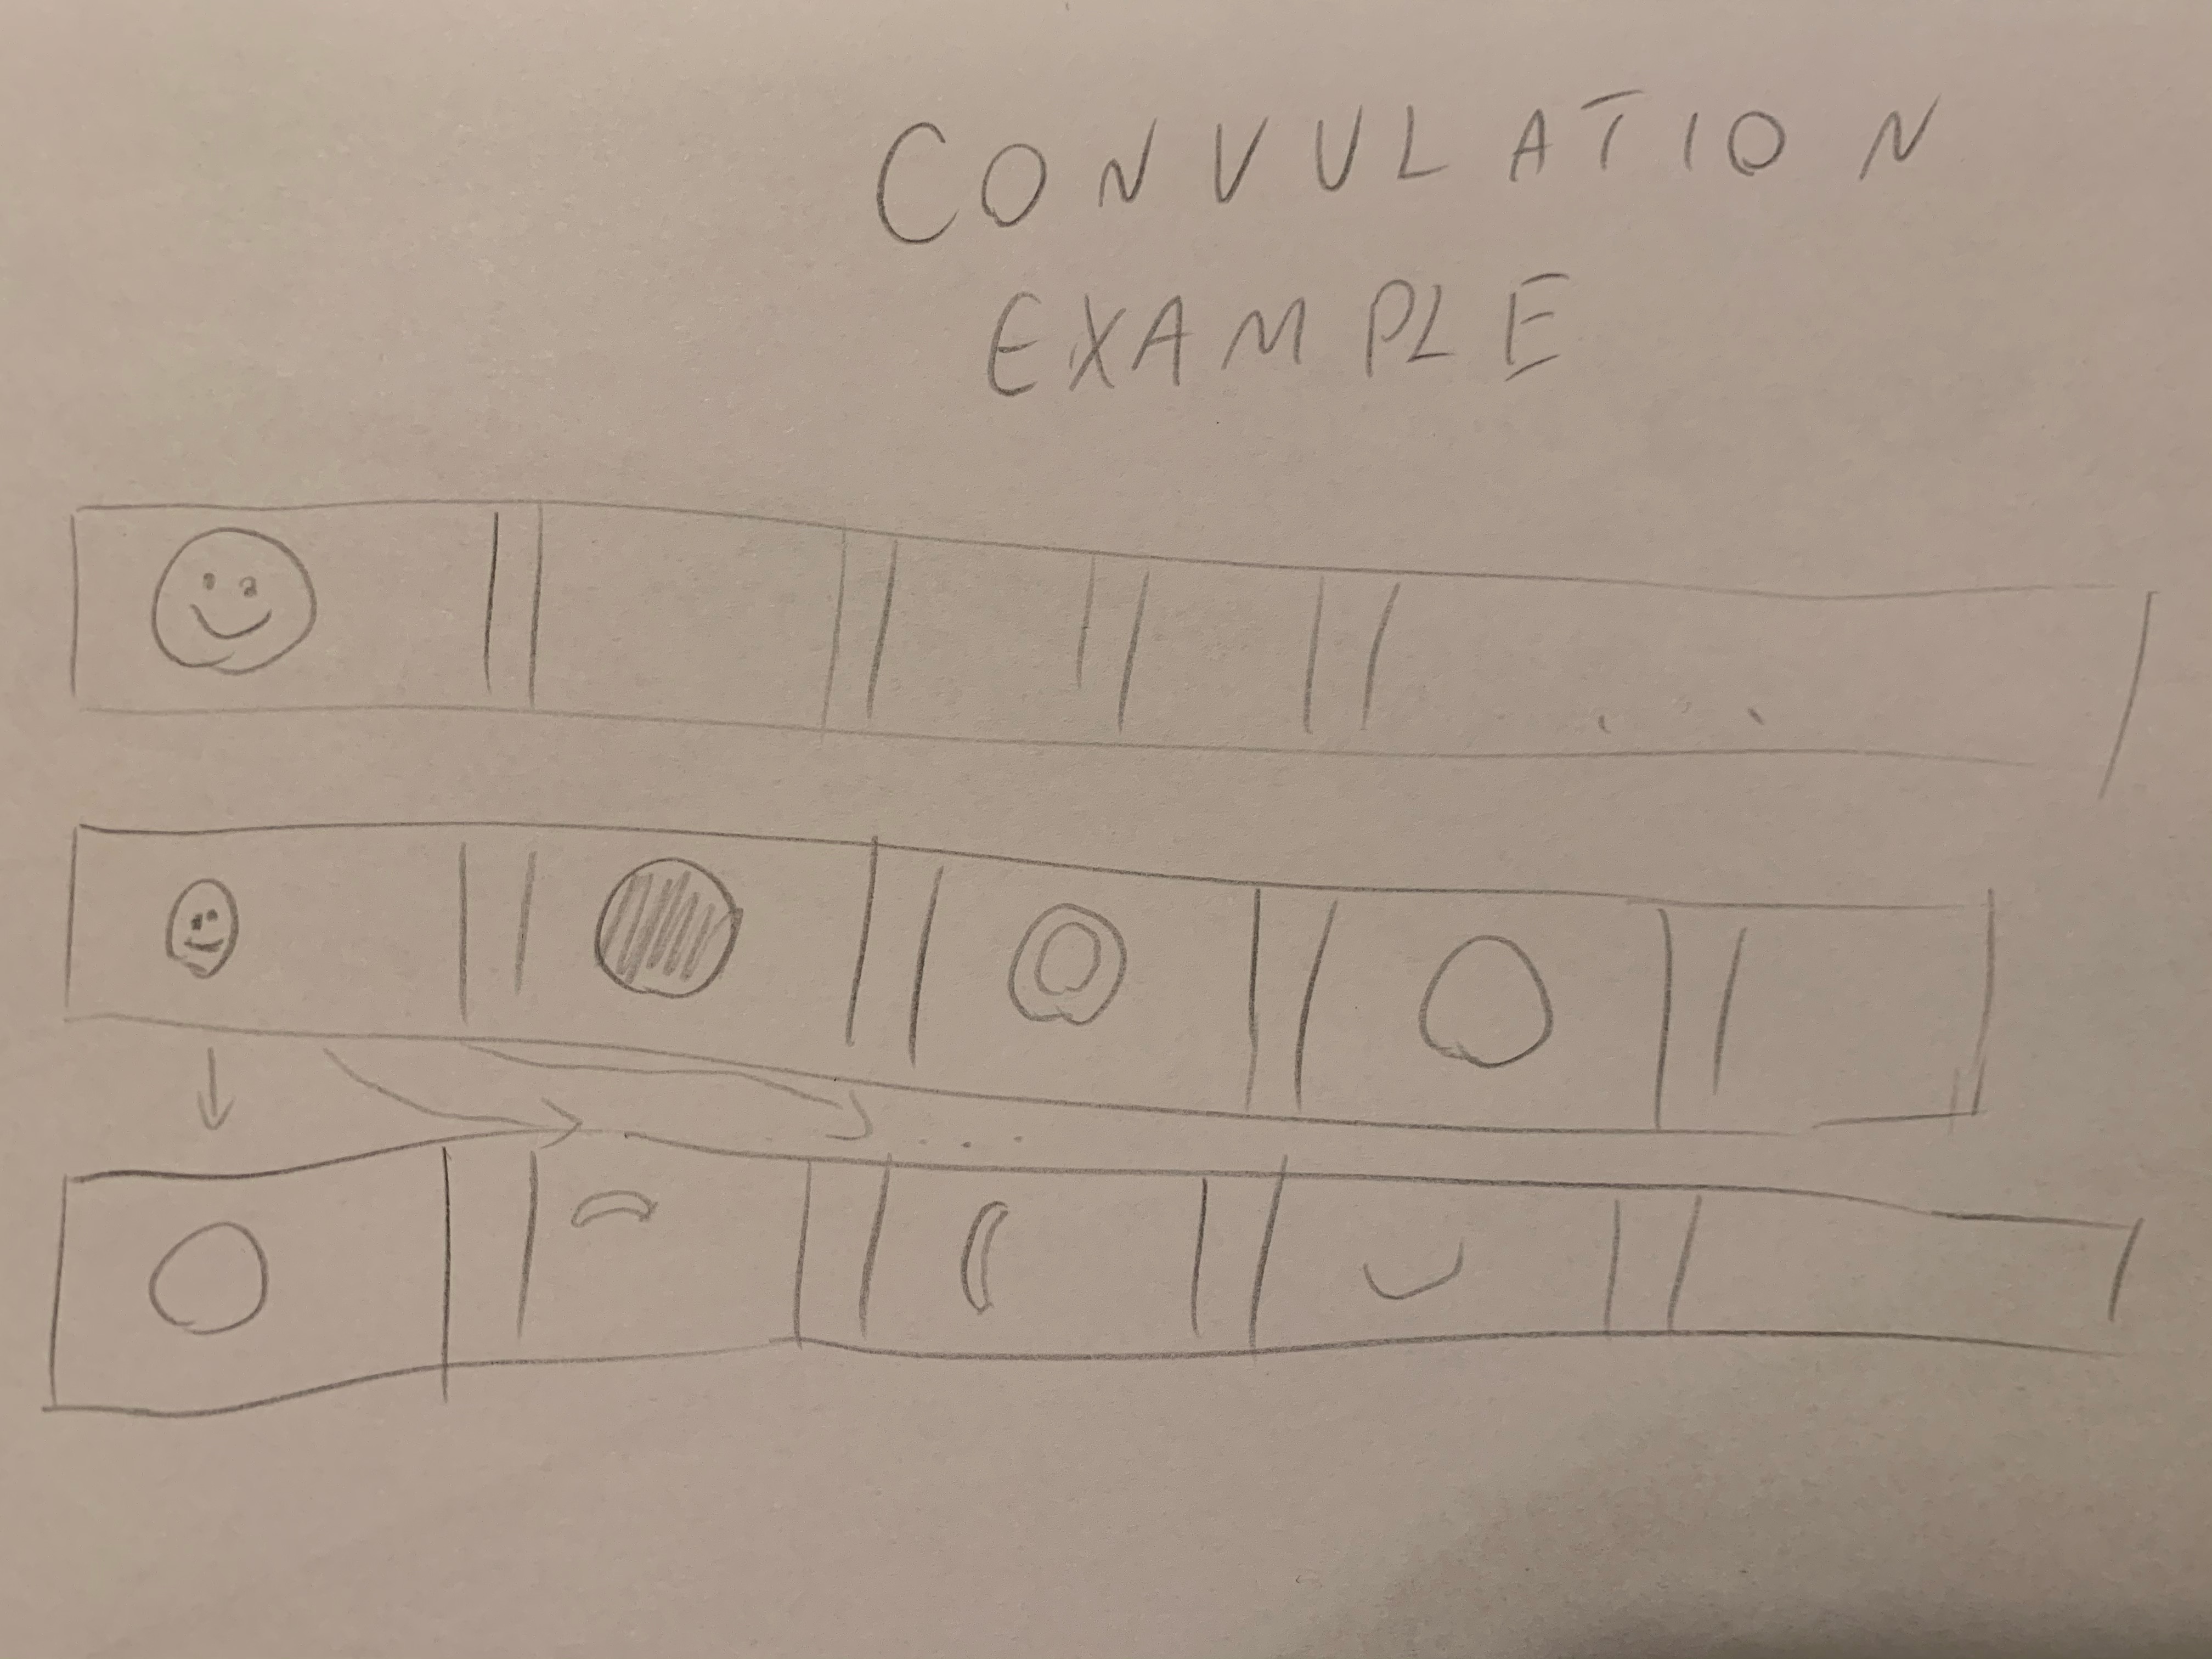 CONVULATION
EXAMPLE